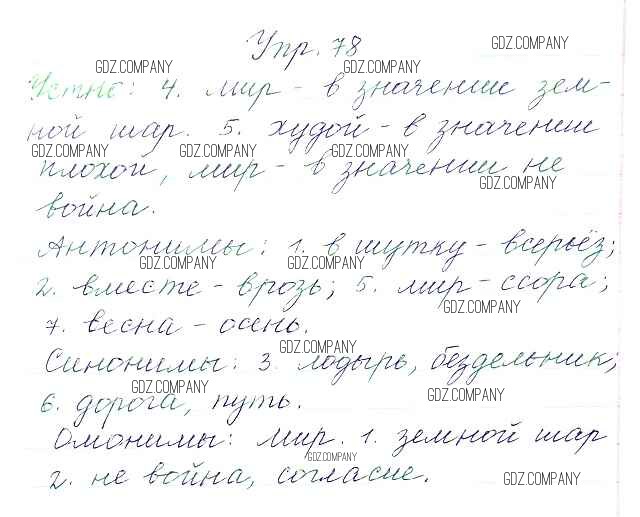 Упр. 78
GDZ.COMPANY
GDZ.COMPANY GDZ.COMPANY
Устно: 4. мир - в значение зем-
ной шар. 5. худой - в значении
GDZ.COMPANY GDZ.COMPANY GDZ.COMPANY
плохой, мир - в значении не
GDZ.COMPANY
война.
Антонимы: 1. в шутку - всерьёз;
GDZ.COMPANY GDZ.COMPANY
2. вместе - врозь; 5. мир - ссора;
GDZ.COMPANY
7. весна - осень.
GDZ.COMPANY
Синонимы: 3. лодырь, бездельник;
GDZ.COMPANY GDZ.COMPANY
6. дорога, путь.
Омонимы: мир. 1. земной шар
GDZ.COMPANY
2. не война, согласие.
GDZ.COMPANY